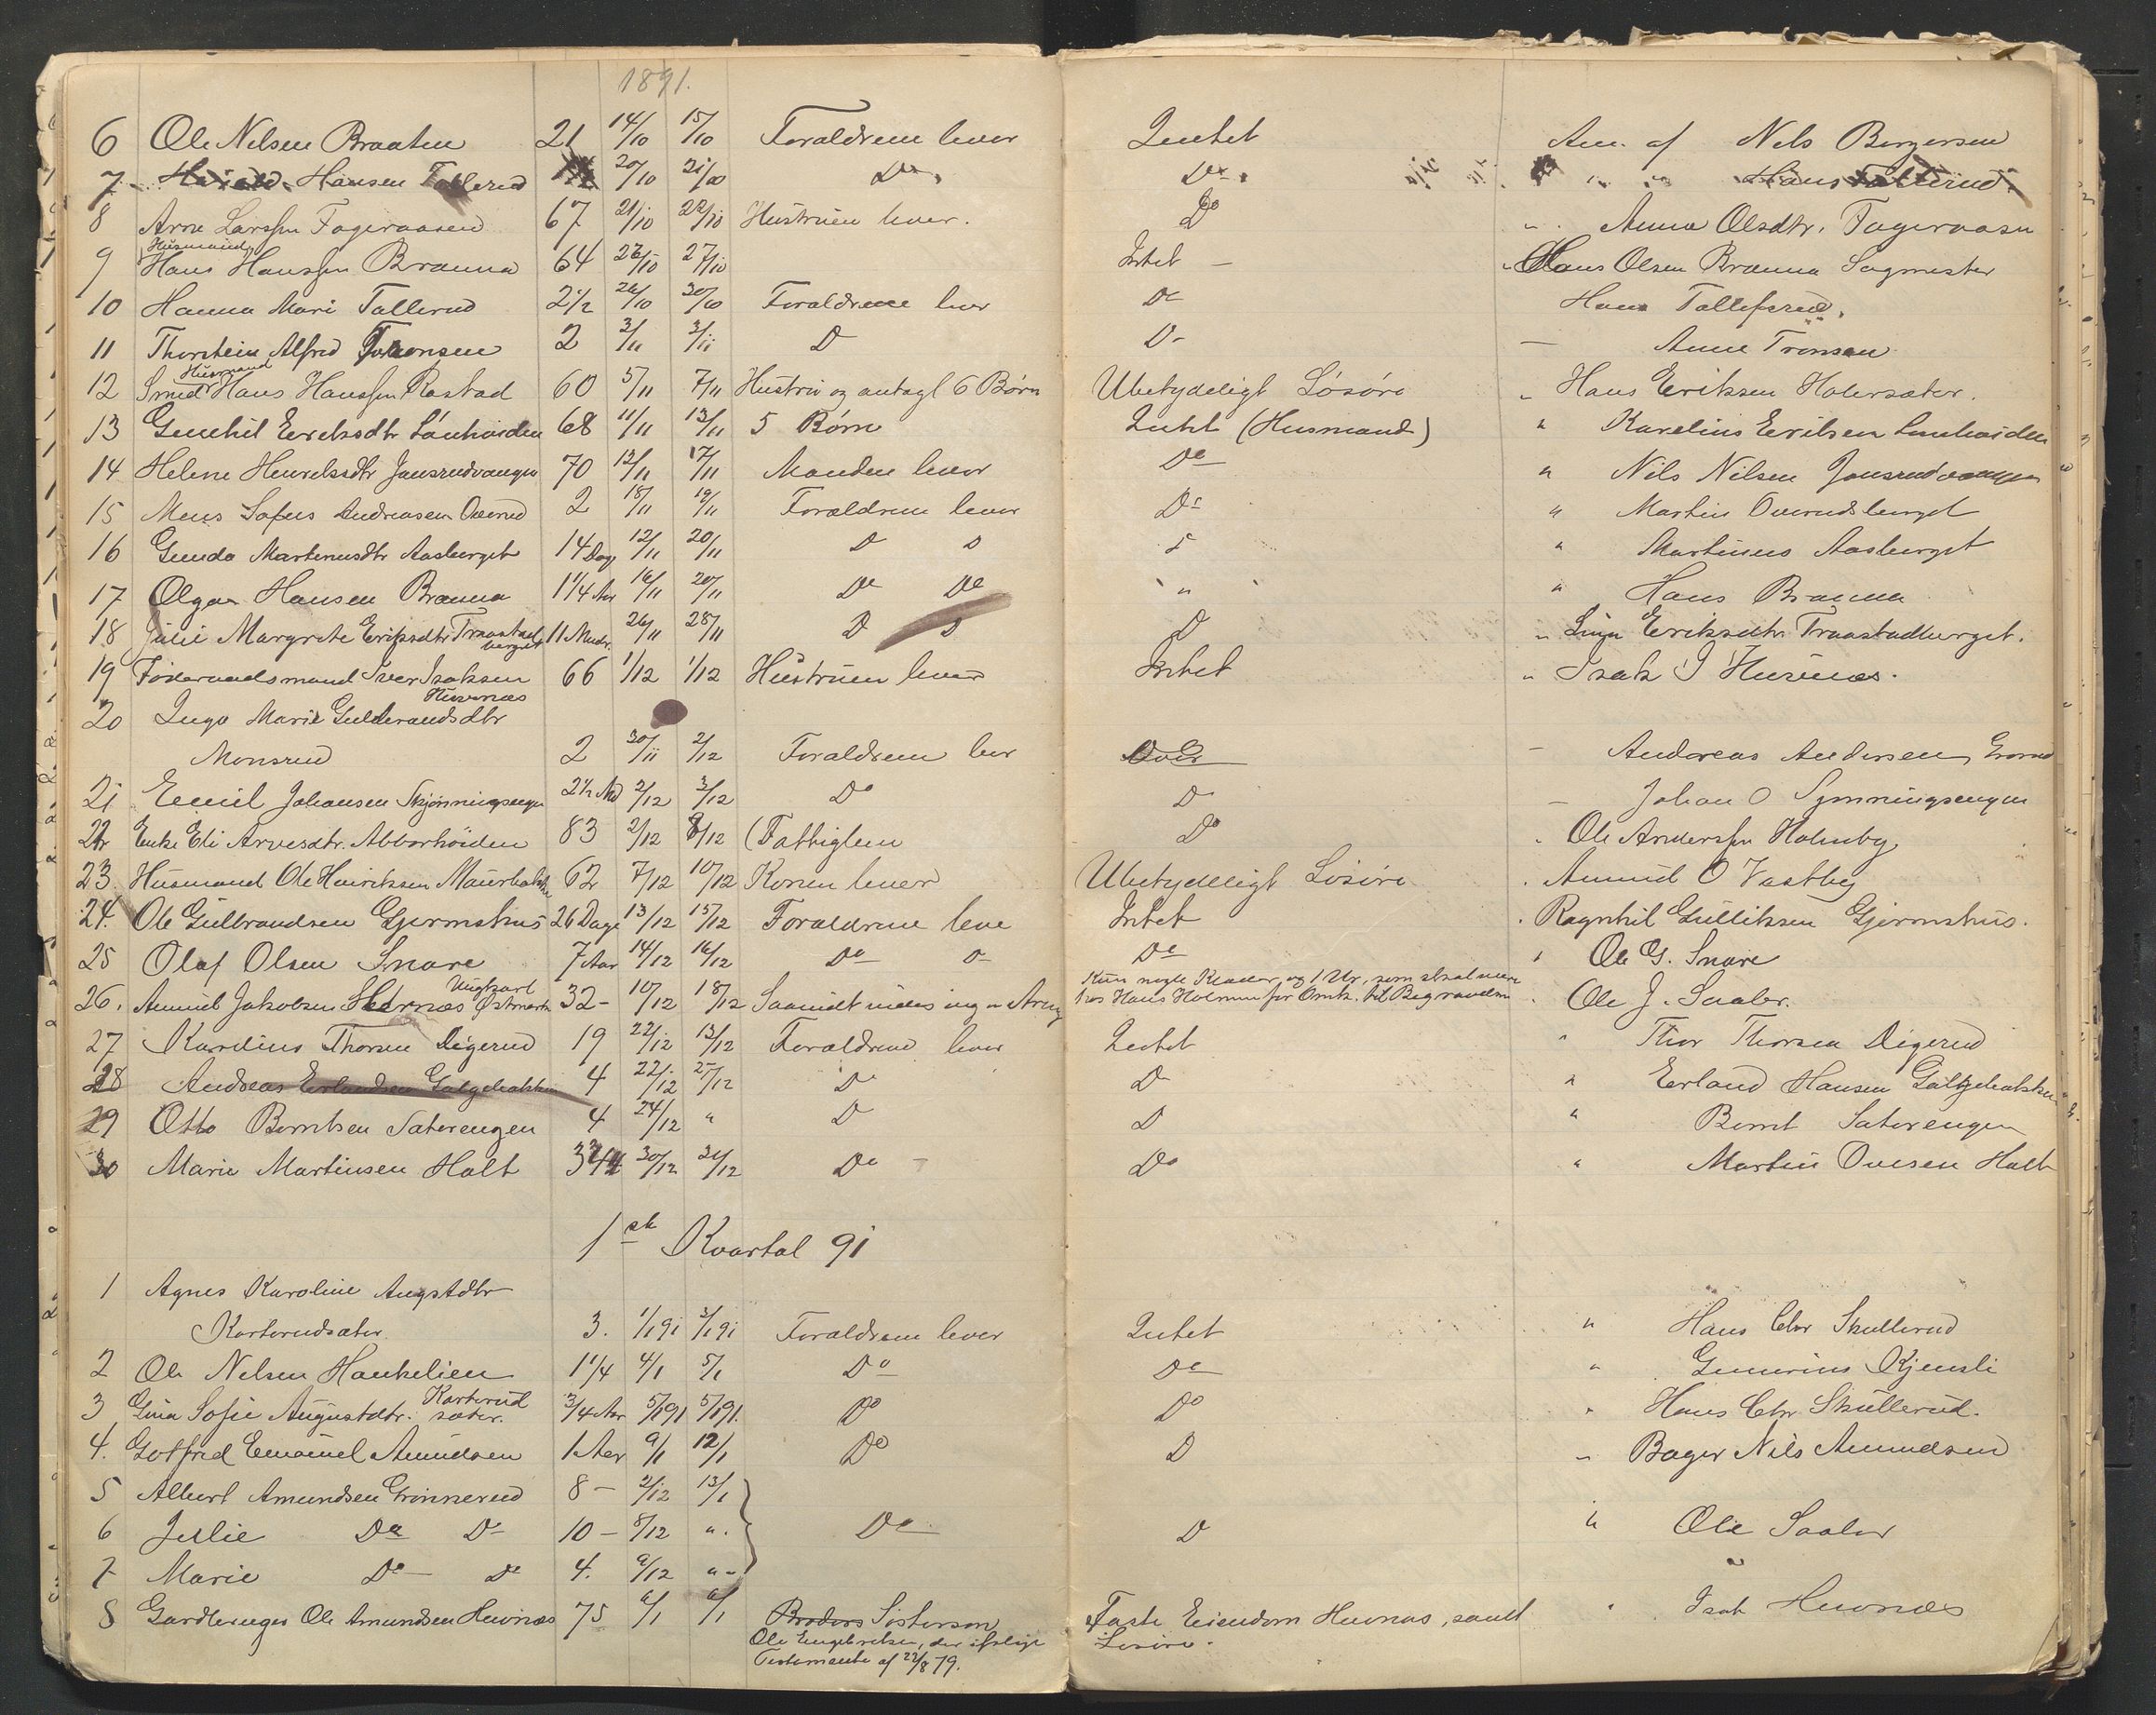 1891.
6 Ole Nilsen Braaten 21 14/10 15/10 Forældrene lever Intet Anm. af Nils Bergersen
7 Hansen Tollerud 20/10 21/10 Do Do " " Hans Tollerud
8 Arne Larssen Fageraasen 67 21/10 22/10 Hustruen lever. Do " Anna Olsdtr. Fageraasen
Husmand
9 Hans Hanssen Brænna 64 26/10 27/10 Intet — " Hans Olsen Brænna Sagmester
10 Hanna Mari Tollerud 2 1/2 26/10 30/10 Forældrene lever Do Hans Tollefsrud.
11 Thorstein Alfred Tronsen 2 3/11 3/11 D D — Anne Tronsen
Husmand
12 Smed Hans Hanssen Rastad 60 5/11 7/11 Hustru og antagl 6 Børn Ubetydeligt Løsøre " Hans Eriksen Holersæter.
13 Gunhil Eeriksdtr Lønhøiden 68 11/11 13/11 5 Børn Intet (Husmand) " Karelius Eeriksen Lønhøiden
14 Helene Henriksdtr Jonsrudvangen 70 12/11 17/11 Manden lever Do " Nils Nilsen Jonsrudvangen
15 Mens Sofus Andreasen Overud 2 18/11 19/11 Forældrene lever Do " Martin Overudsberget
16 Gunda Martinusdtr Aasberget 14 Dag 12/11 20/11 D D D " Martinus Aasberget
17 Olga Hansen Brænna 1 1/4 Aar 16/11 20/11 Do Do " " Hans Brænna
18 Julie Margrete Eriksdtr Traastad 11 Mndr. 26/11 28/11 D D D " Lina Eriksdtr Traastadberget.
berget
19 Føderaadsmand Iver Isaksen 66 1/12 1/12 Hustruen lever Intet " Isak I Huvnæs.
Huvnæs
20 Inga Marie Gulbrandsdtr
Monsrud 2 30/11 2/12 Forældrene lever Do — Andreas Andersen
21 Emil Johansen Skjønningsengen 2 1/2 Md 2/12 3/12 Do D — Johan O
22 Enke Eli Arvesdtr. Abborhøiden 83 2/12 8/12 (Fattiglem Do " Ole Anderssen Holmby
23. Husmand Ole Henriksen 62 7/12 10/12 Konen lever Ubetydeligt Løsøre " Amund O Vestby
24. Ole Gulbrandsen Gjermshus 26 Dage 13/12 15/12 Forældrene leve Intet " Ragnhil Gulliksen Gjermshus.
25 Olaf Olsen Snare 7 Aar 14/12 16/12 Do D Do " Ole G. Snare
Ungkarl Kun nogle Klæder og 1 Uhr, som skal være
26. Amund Jakobsen Østmark 32 - 10/12 18/12 Saavidt vides ing n Arving hos Hans Holmen for Omk. til Begravelsen " Ole J. Saaler.
27 Karelius Thorsen Digerud 19 22/12 13/12 Forældrene lever Intet " Thor Thorsen Digerud
28 Andreas Erlandsen Galgebakken 4 22/12 27/12 D D " Eerland Hansen Galgebakken
29 Otto Berntsen Sæterengen 4 24/12 " D D " Bernt Sæterengen
30 Marie Martinsen Holt 30/12 31/12 Do Do " Martin Ovesen Holt
1ste Kvartal 91
1 Agnes Karoline Augstdtr
Karterudsæter 3. 1/1 91 3/1 91 Forældrene lever Intet " Hans Chr Skullerud
2 Ole Nilsen Haukelien 1 1/4 4/1 5/1 Do Do " Gunerius Kjensli
Karterud
3 Gina Sofie Augustdtr. sæter. 3/4 Aar 5/1 91 5/1 91. Do Do " Hans Chr Skullerud.
4. Gotfred Emanuel Amundsen 1 Aar 9/1 12/1 Do D " Bager Nils Amundsen
5 Albert Amundsen Grønnerud 8 - 2/12 13/1
6 Julie Do Do 10 - 8/12 " Do D " Ole Saaler
7 Marie Do Do 4. 9/12 "
8 Gardbruger Ole Amundsen Huvnæs 75 6/1 6/1 Broders Søstersøn Faste Eiendom Huvnæs, samt " Isak Huvnæs
Ole Engebretsen, der ifølge Løsøre.
Testamente af 22/8 79.